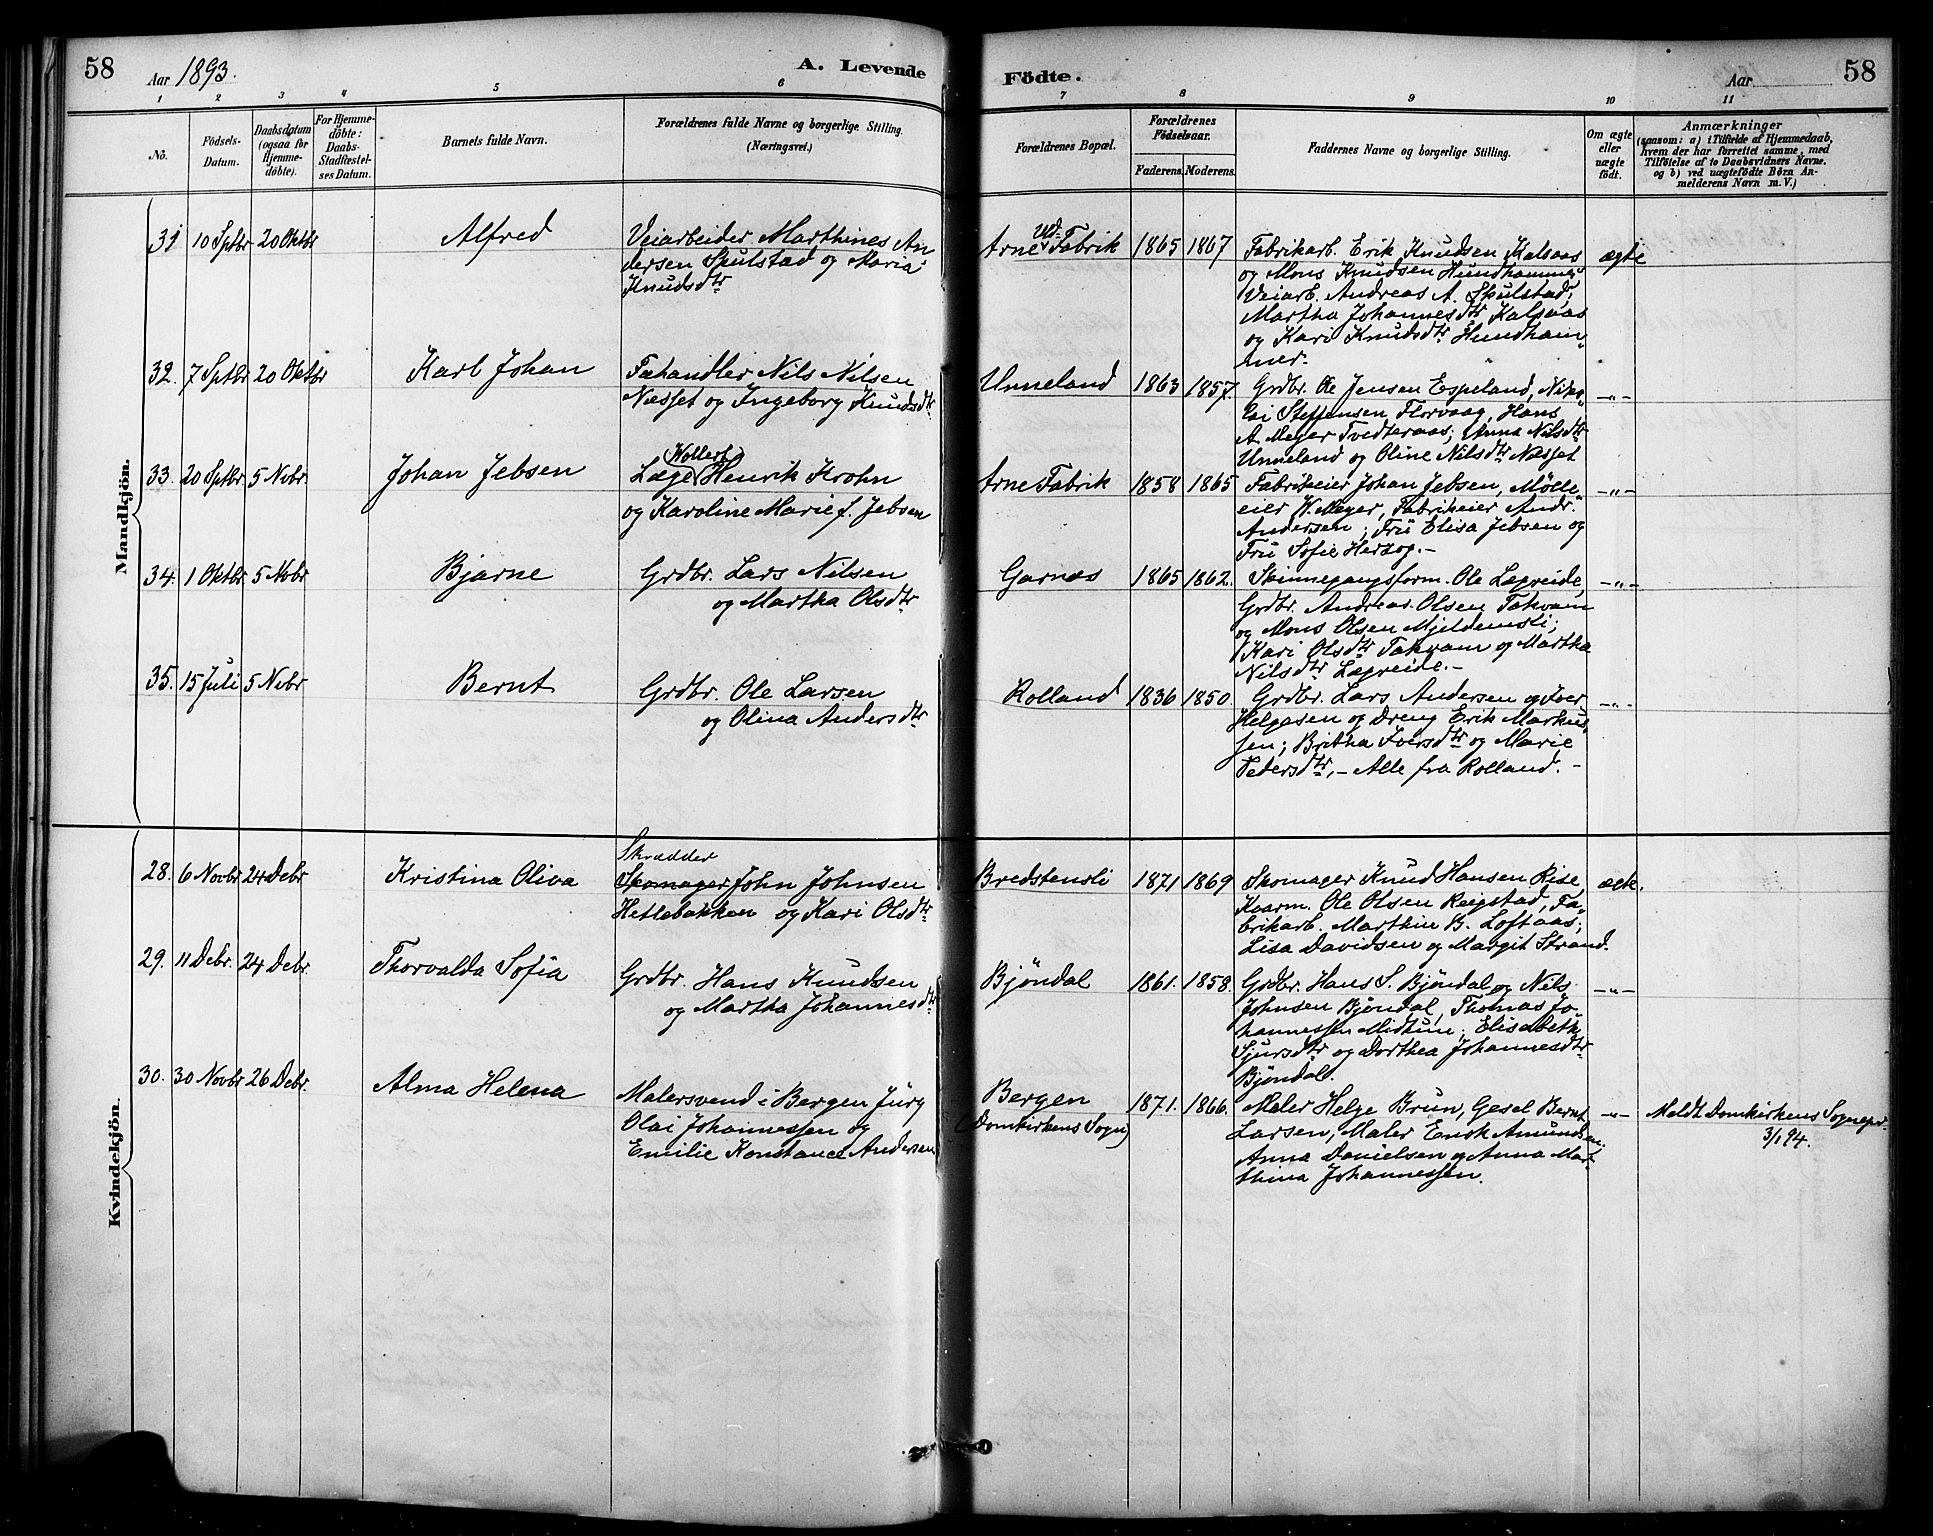 58
Aar 1893.
A. Levende
Födte.
Aar
58
1 2 3 4 5 6 7 8 9 10 11
No.
Födsels-
Datum.
Daabsdatum
(ogsaa for
Hjemme-
döbte).
For Hjemme-
döbte:
Daabs-
Stadfæstel-
ses Datum.
Barnets fulde Navn.
Forældrenes fulde Navne og borgerlige Stilling.
(Næringsvei.)
Forældrenes Bopæl.
Forældrenes
Födselsaar.
Faderens. Moderens.
Faddernes Navne og borgerlige Stilling.
Om ægte
eller
uægte
födt.
Anmærkninger
(saasom: a) i Tilfælde af Hjemmedaab,
hvem der har forrettet samme, med
Tilföielse af to Daabsvidners Navne.
og b) ved uægtefödte Börn An-
melderens Navn m. V.)
Mandkjön.
31 10 Sptbr 20 Oktbr
Alfred
Veiarbeider Marthines An
dersen Skulstad og Maria
Knudsdtr
Arne ved Fabrik
1865 1867
Fabrikarb. Erik Knudsen Kalsaas
og Mons Knudsen Hundhammer,
Veiarb. Andreas A. Skulstad,
Martha Johannesdtr Kalsaas
og Kari Knudsdtr Hundham„
mer.
ægte
32. 7 Sptbr 20 Oktbr
Karl Johan
Fæhandler Nils Nilsen
Næsset og Ingeborg Knudsdtr
Unneland
1863 1857.
Grdbr. Ole Jensen Espeland, Niko„
lai Steffensen Florvaag, Hans
A. Meyer Tvedteraas; Anna Nilsdtr
Unneland og Oline Nilsdtr Næsset
-„-
33. 20 Sptbr 5 Novbr
Johan Jebsen
Wollert
Læge Henrik Krohn
og Karoline Marie f. Jebsen
Arne Fabrik
1858 1865
Fabrikeier Johan Jebsen, Mölle„
eier W. Meyer, Fabrikeier Andr.
Andersen; Fru Elisa Jebsen og
Fru Sofie Herzog.-
-„-
34. 1 Oktbr 5 Novbr
Bjarne
Grdbr. Lars Nilsen
og Martha Olsdtr
Garnæs
1865 1862.
Skinnegangsform. Ole Lægreide,
Grdbr. Andreas Olsen Takvam
og Mons Olsen Mjeldemsli;
Kari Olsdtr Takvam og Martha
Nilsdtr Lægreide.-
-„-
35. 15 Juli 5 Novbr
Bernt
Grdbr. Ole Larsen
og Olina Andersdtr
Rolland
1836 1850.
Grdbr. Lars Andersen og Iver
Helgesen og Dreng Erik Markus„
sen; Britha Iversdtr og Marie
Pedersdtr, - Alle fra Rolland.-
-„-
Kvindekjön.
28. 6 Novbr 24 Debr
Kristina Oliva
Skrædder
Skomager John Johnsen
Hetlebakken og Kari Olsdtr
Bredstensli
1871 1869
Skomager Knud Hansen Rise,
Kaarm. Ole Olsen Reigstad, Fa„
brikarb. Marthin B. Loftaas;
Lisa Davidsen og Margit Strand.
ægte.
29. 11 Debr. 24 Debr.
Thorvalda Sofia
Grdbr. Hans Knudsen
og Martha Johannesdtr
Bjöndal
1861. 1858.
Grdbr. Hans S. Bjöndal og Nils
Johnsen Bjöndal, Thomas Jo-
hannessen Midtun; Elisabeth
Sjursdtr og Dorthea Johannesdtr
Bjöndal.
-„-
30. 30 Novbr 26 Debr.
Alma Helena
Malersvend i Bergen Jürg
Olai Johannessen og
Emilie Konstance Andersen
Bergen
(Domkirkens Sogn)
1871. 1866.
Maler Helge Brun, Gesel Bernt
Larsen, Maler Enok Amundsen.
Anna Danielsen og Anna Mar-
thina Johannessen.
-„-
Meldt Domkirkens Sognepr.
3/1 94.